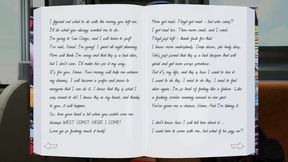 I figured out what to do with the money you left me.
I'll do what you always wanted me to do.
I'm going to San Diego, and I will learn to surf!
For real, Nana! I'm going! I spent all night planning.
Mom will think I'm crazy and that this is a bad idea,
but I don't care. I'll make her pay my way.
It's for you, Nana. Your money will help me achieve
my dreams. I will become a surfer and prove to
everyone that I can do it. I know that this is what I
was meant to do! I know this in my heart, and thanks
to you, it will happen.
So, keep your head a bit when you watch over me
because WEST COAST HERE I COME!
Love you so fucking much it hurts!
Mom got mad. Nhyel got mad - but who cares?
I got mad too. Then mom cried, and I cried.
Nhyel just left - thank fuck for that.
I know mom understands. Deep down, she truly does.
She just pissed that this is a bad decision that will
grind and get even worse somehow.
But it's my life, and this is how I want to live it.
I want to do this. I need to do this. I need to feel
alive again. I'm so tired of feeling like a failure. Like
a fucking zombie moving around in one spot.
You've given me a chance, Nana. And I'm taking it.
I don't know how I will tell him about it...
I want him to come with me, but what if he says no?